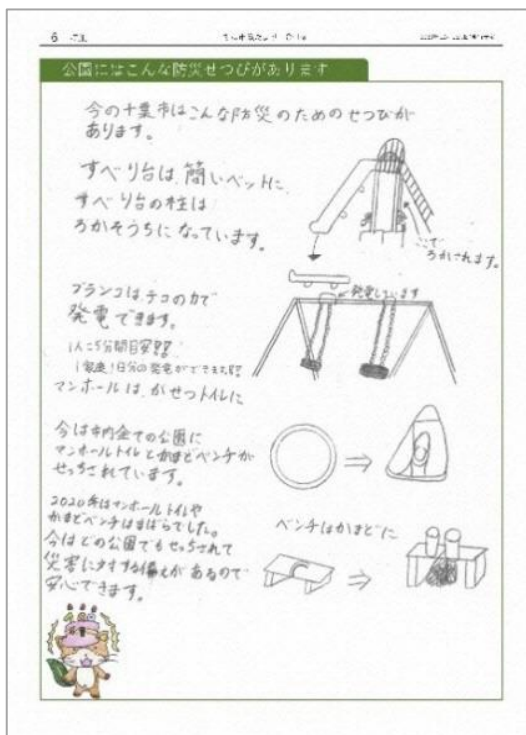 6
公園にはこんな防災せつびがあります
今の千葉市はこんな防災のためのせつびが
あります。
すべり台は、簡いベットに、
すべり台の柱は
ろかそうちになっています。
ここで
ろかされます。
ブランコは、テコの力で
発電できます。
発電しています
1人に5分間目安!!
1家庭1日分の発電ができます!!
マンホールは、かせつトイレに
今は市内全ての公園に
マンホールトイレとかまどベンチが
せっちされています。
2020年はマンホールトイレや
かまどベンチはまばらでした。
今はどの公園でもせっちされて
災害に対する備えがあるので
安心できます。
ベンチはかまどに